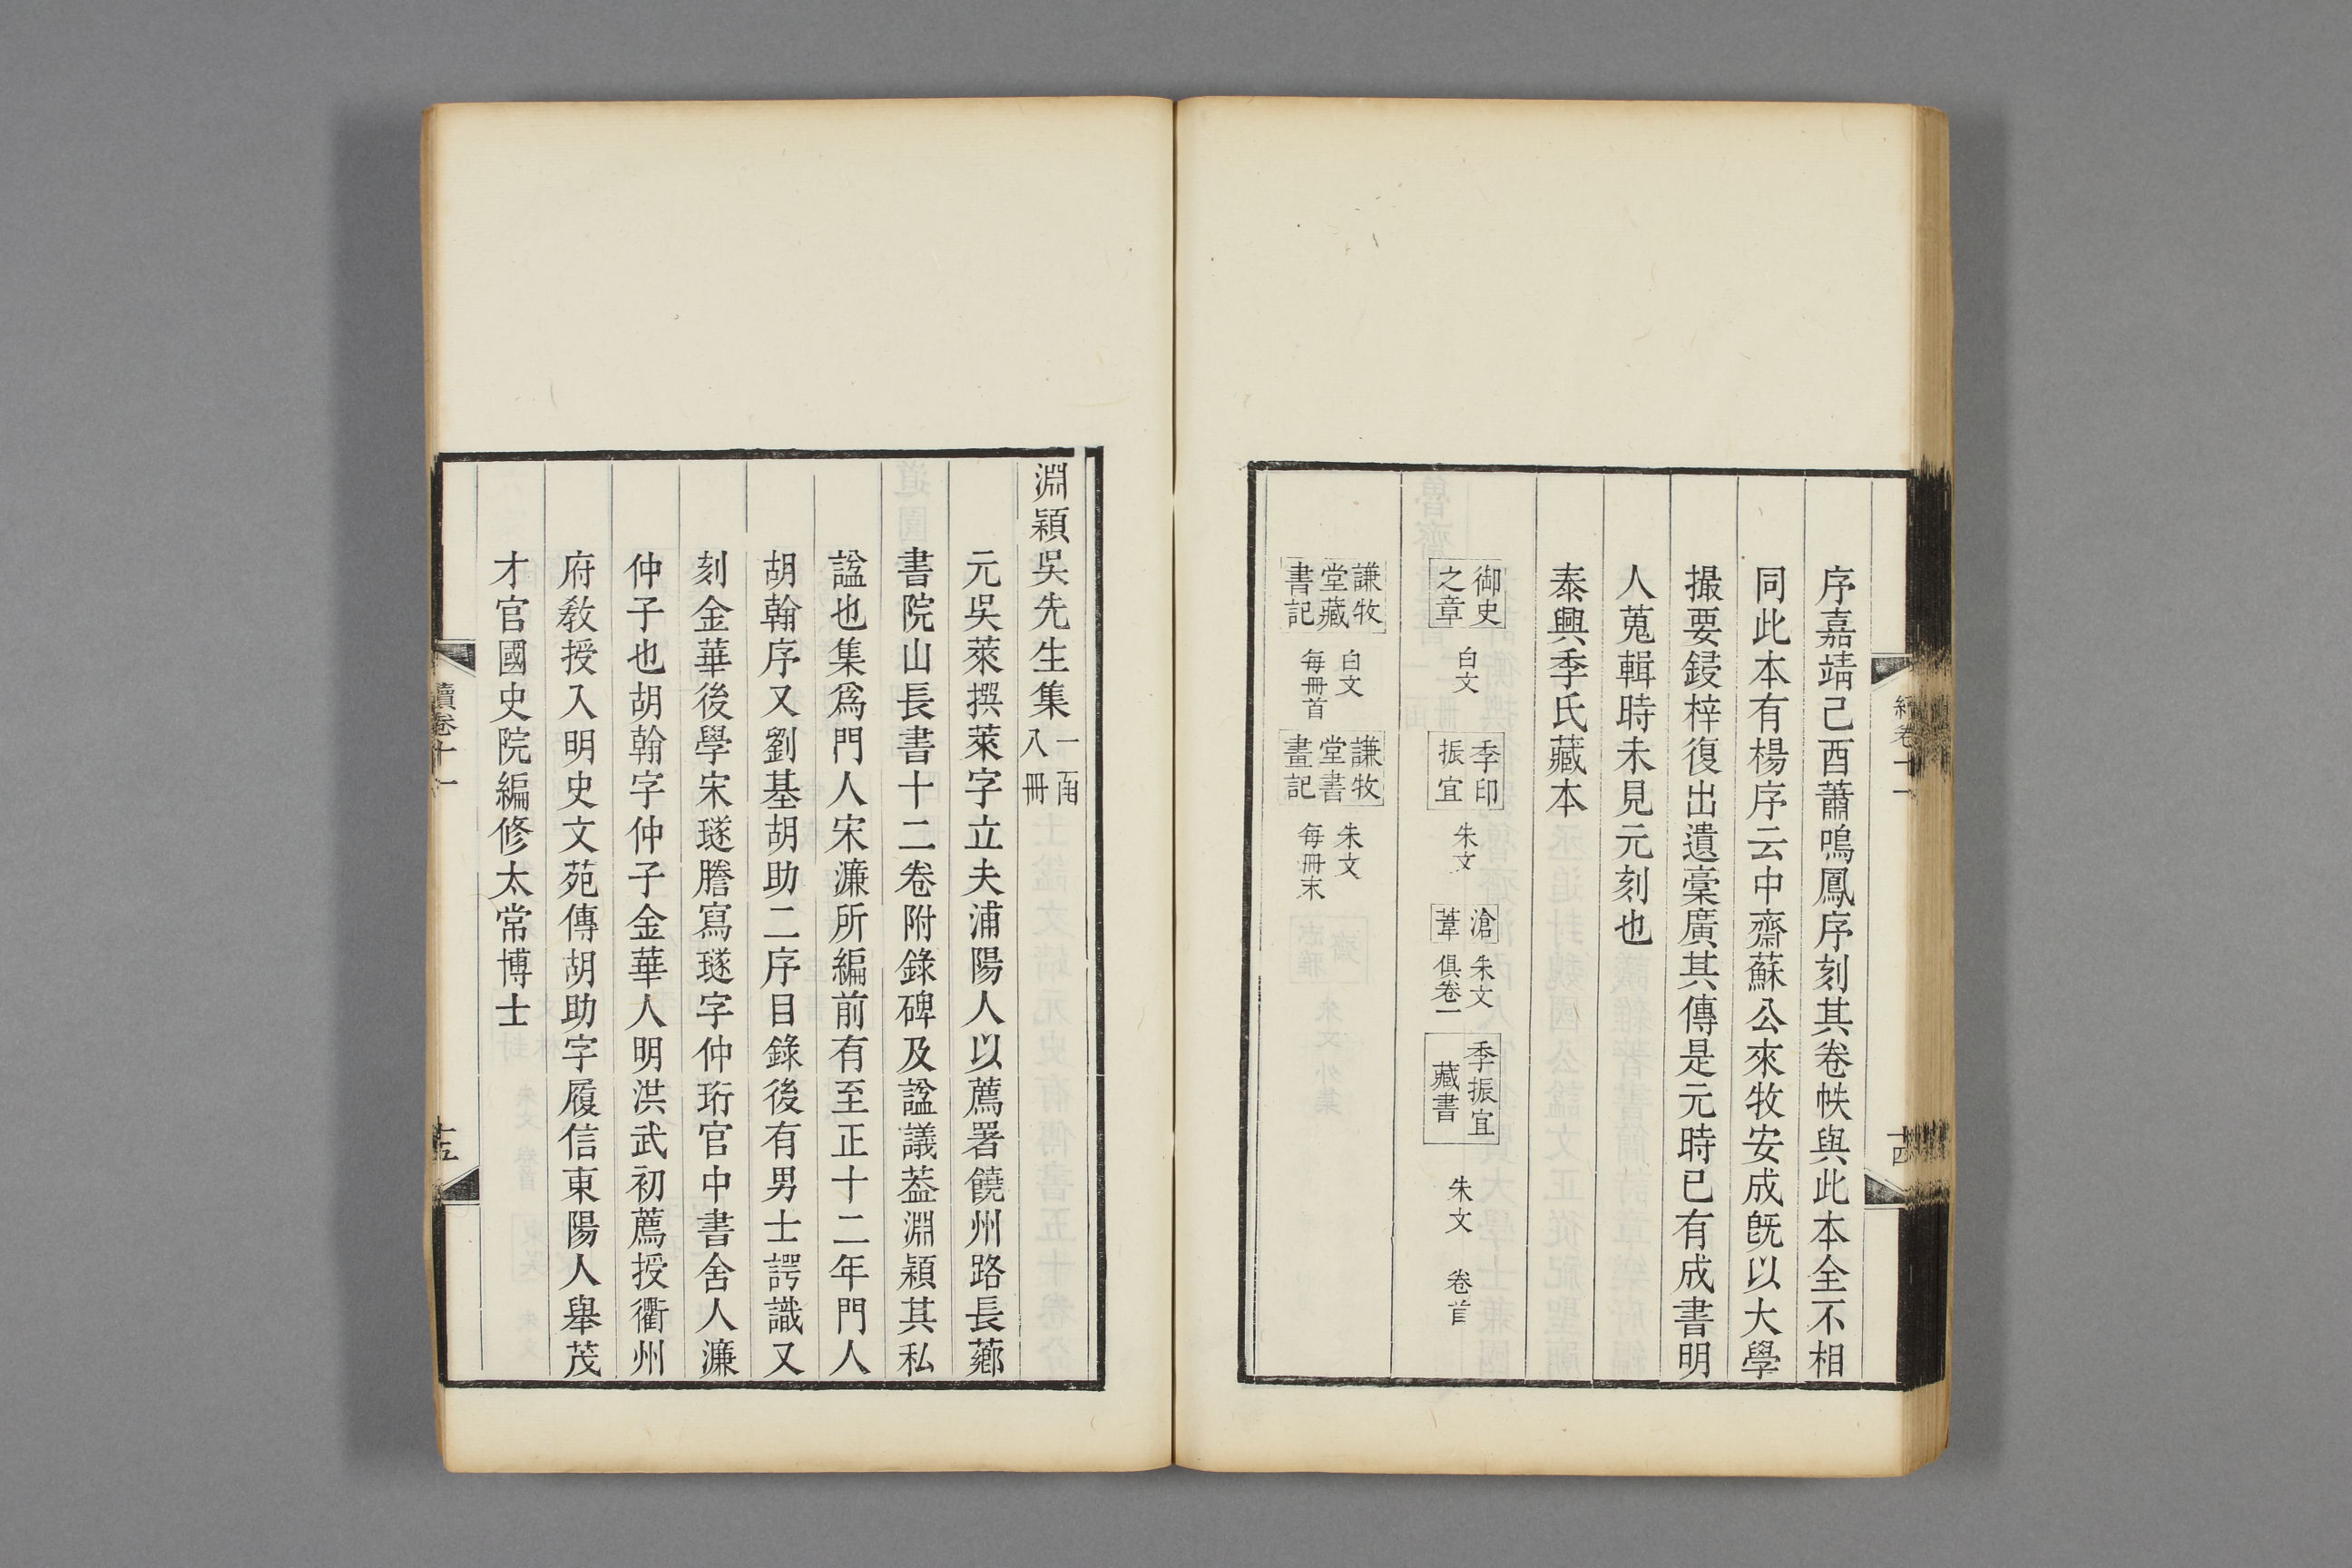 序嘉靖己酉蕭鳴鳳序刻其卷帙與此本全不相
同此本有楊序云中齋蘇公來牧安成旣以大學
撮要鋟梓復出遺稾廣其傳是元時已有成書明
人蒐輯時未見元刻也
泰興季氏藏本
御史之章 白文 季印振宜 朱文 滄葦 朱文俱卷一 季振宜藏書 朱文 卷首
謙牧堂藏書記 白文每冊首 謙牧堂書畫記 朱文每冊末
續卷十一
十四
淵穎吳先生集 一函八冊
元吳萊撰萊字立夫浦陽人以薦署饒州路長薌
書院山長書十二卷附錄碑及諡議葢淵穎其私
諡也集爲門人宋濂所編前有至正十二年門人
胡翰序又劉基胡助二序目錄後有男士諤識又
刻金華後學宋璲謄寫璲字仲珩官中書舍人濂
仲子也胡翰字仲子金華人明洪武初薦授衢州
府敎授入明史文苑傳胡助字履信東陽人舉茂
才官國史院編修太常博士
續卷十一
十五